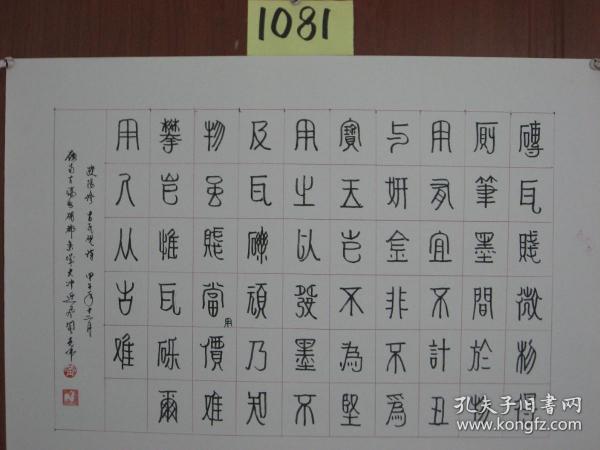 1081
磚瓦賤微物得
厕筆墨間於物
用有宜不計丑
与妍金非不為
寶玉豈不為堅
用之以發墨不
及瓦礫頑乃知
物虽賤當用價难
攀豈惟瓦砾爾
用人从古难
歐陽修 古瓦硯詩 甲午年十二月
孔夫子旧书网
www.kongfz.com